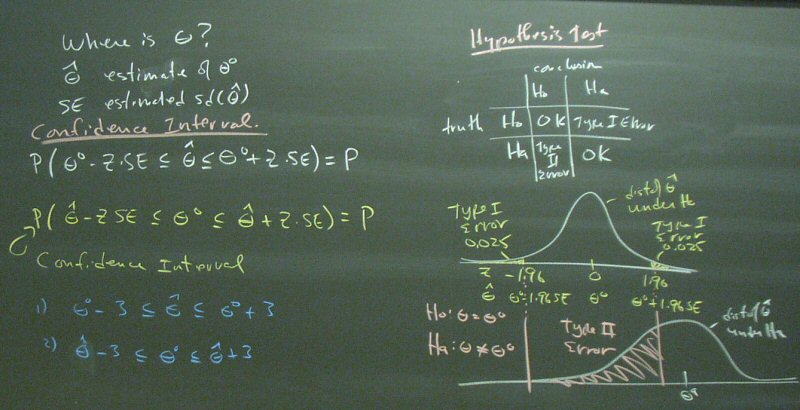 Where is θ?
θ̂ estimate of θ°
SE estimated sd(θ̂)
Confidence Interval.
P(θ°-Z·SE ≤ θ̂ ≤ θ°+Z·SE) = P
P(θ̂-Z SE ≤ θ° ≤ θ̂+Z·SE) = P
Confidence Interval
1) θ°-3 ≤ θ̂ ≤ θ°+3
2) θ̂-3 ≤ θ° ≤ θ̂+3
Hypothesis Test
conclusion
Ho Ha
truth Ho OK Type I Error
Ha Type II Error OK
dist of θ̂
under Ho
Type I
Error
0.025
Type I
Error
0.025
Z -1.96 0 1.96
θ̂ θ°-1.96SE θ° θ°+1.96SE
Ho: θ=θ°
Ha: θ≠θ°
Type II
Error
dist of θ̂
under Ha
θª